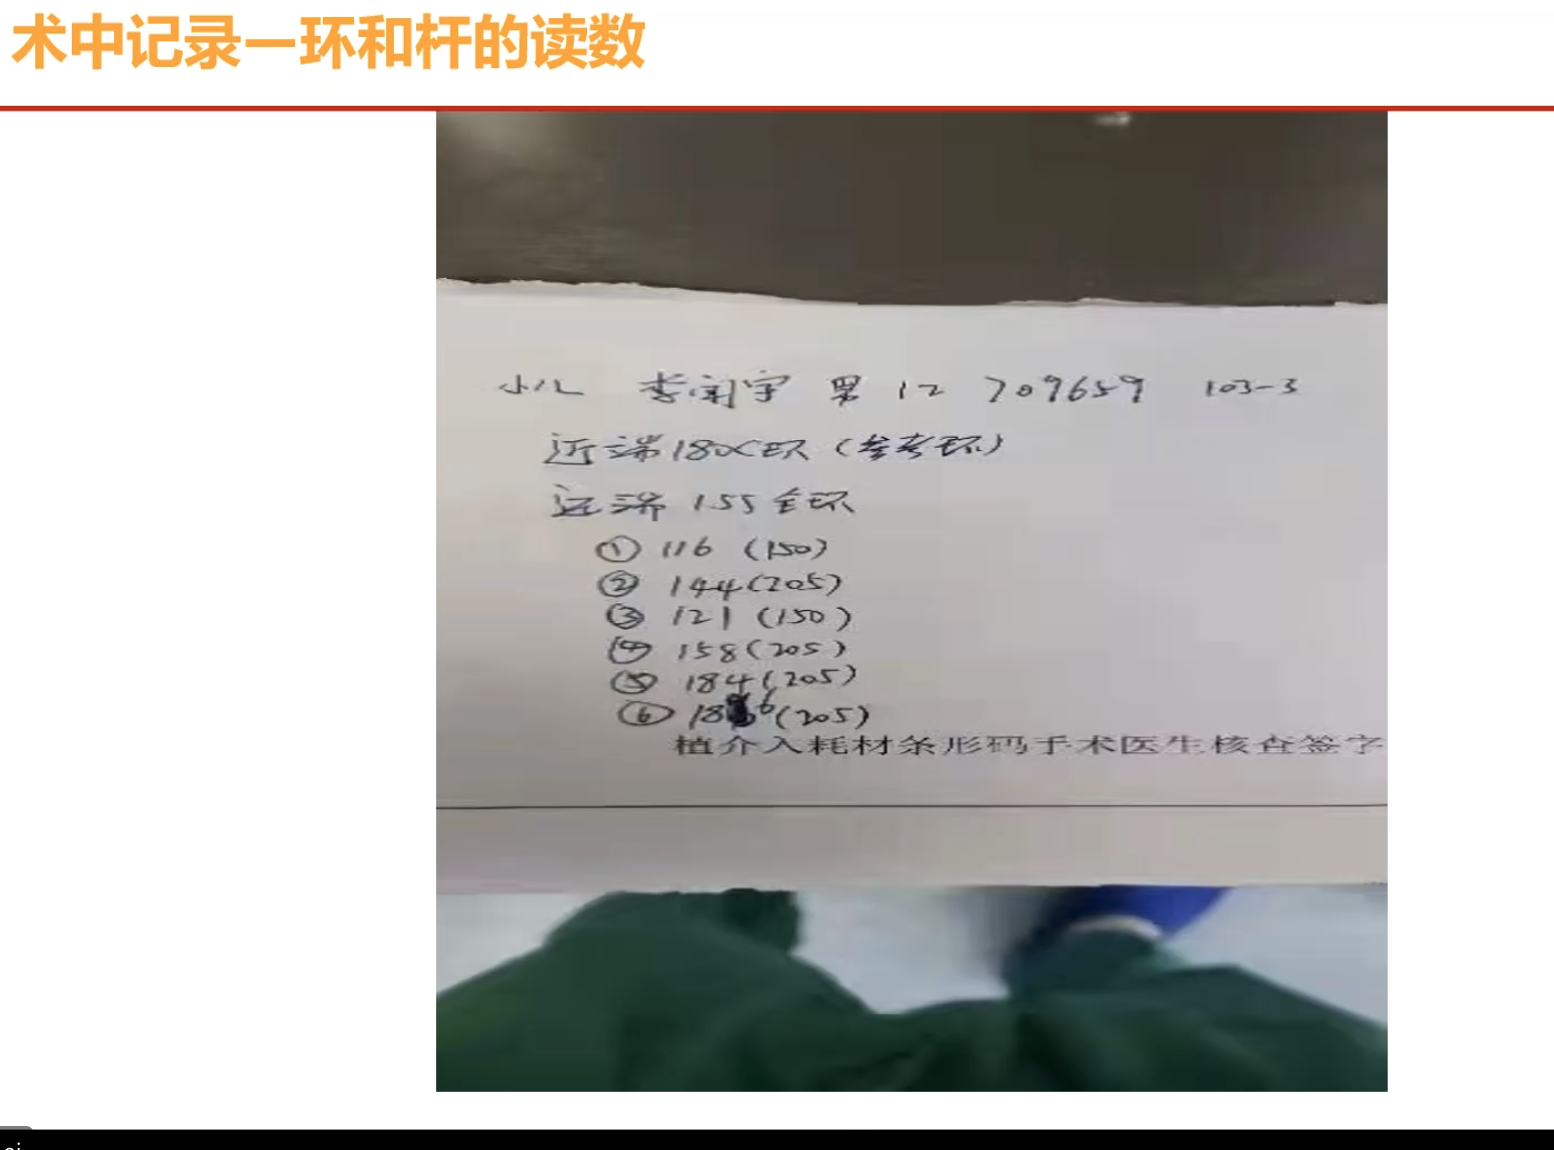 术中记录—环和杆的读数
小儿 李闻宇 男 12 709659 103-3
近端180 环（参考环）
远端 155全环
① 116 (150)
② 144(205)
③ 121 (150)
④ 158(205)
⑤ 184(205)
⑥ 186(205)
植介入耗材条形码手术医生核查签字